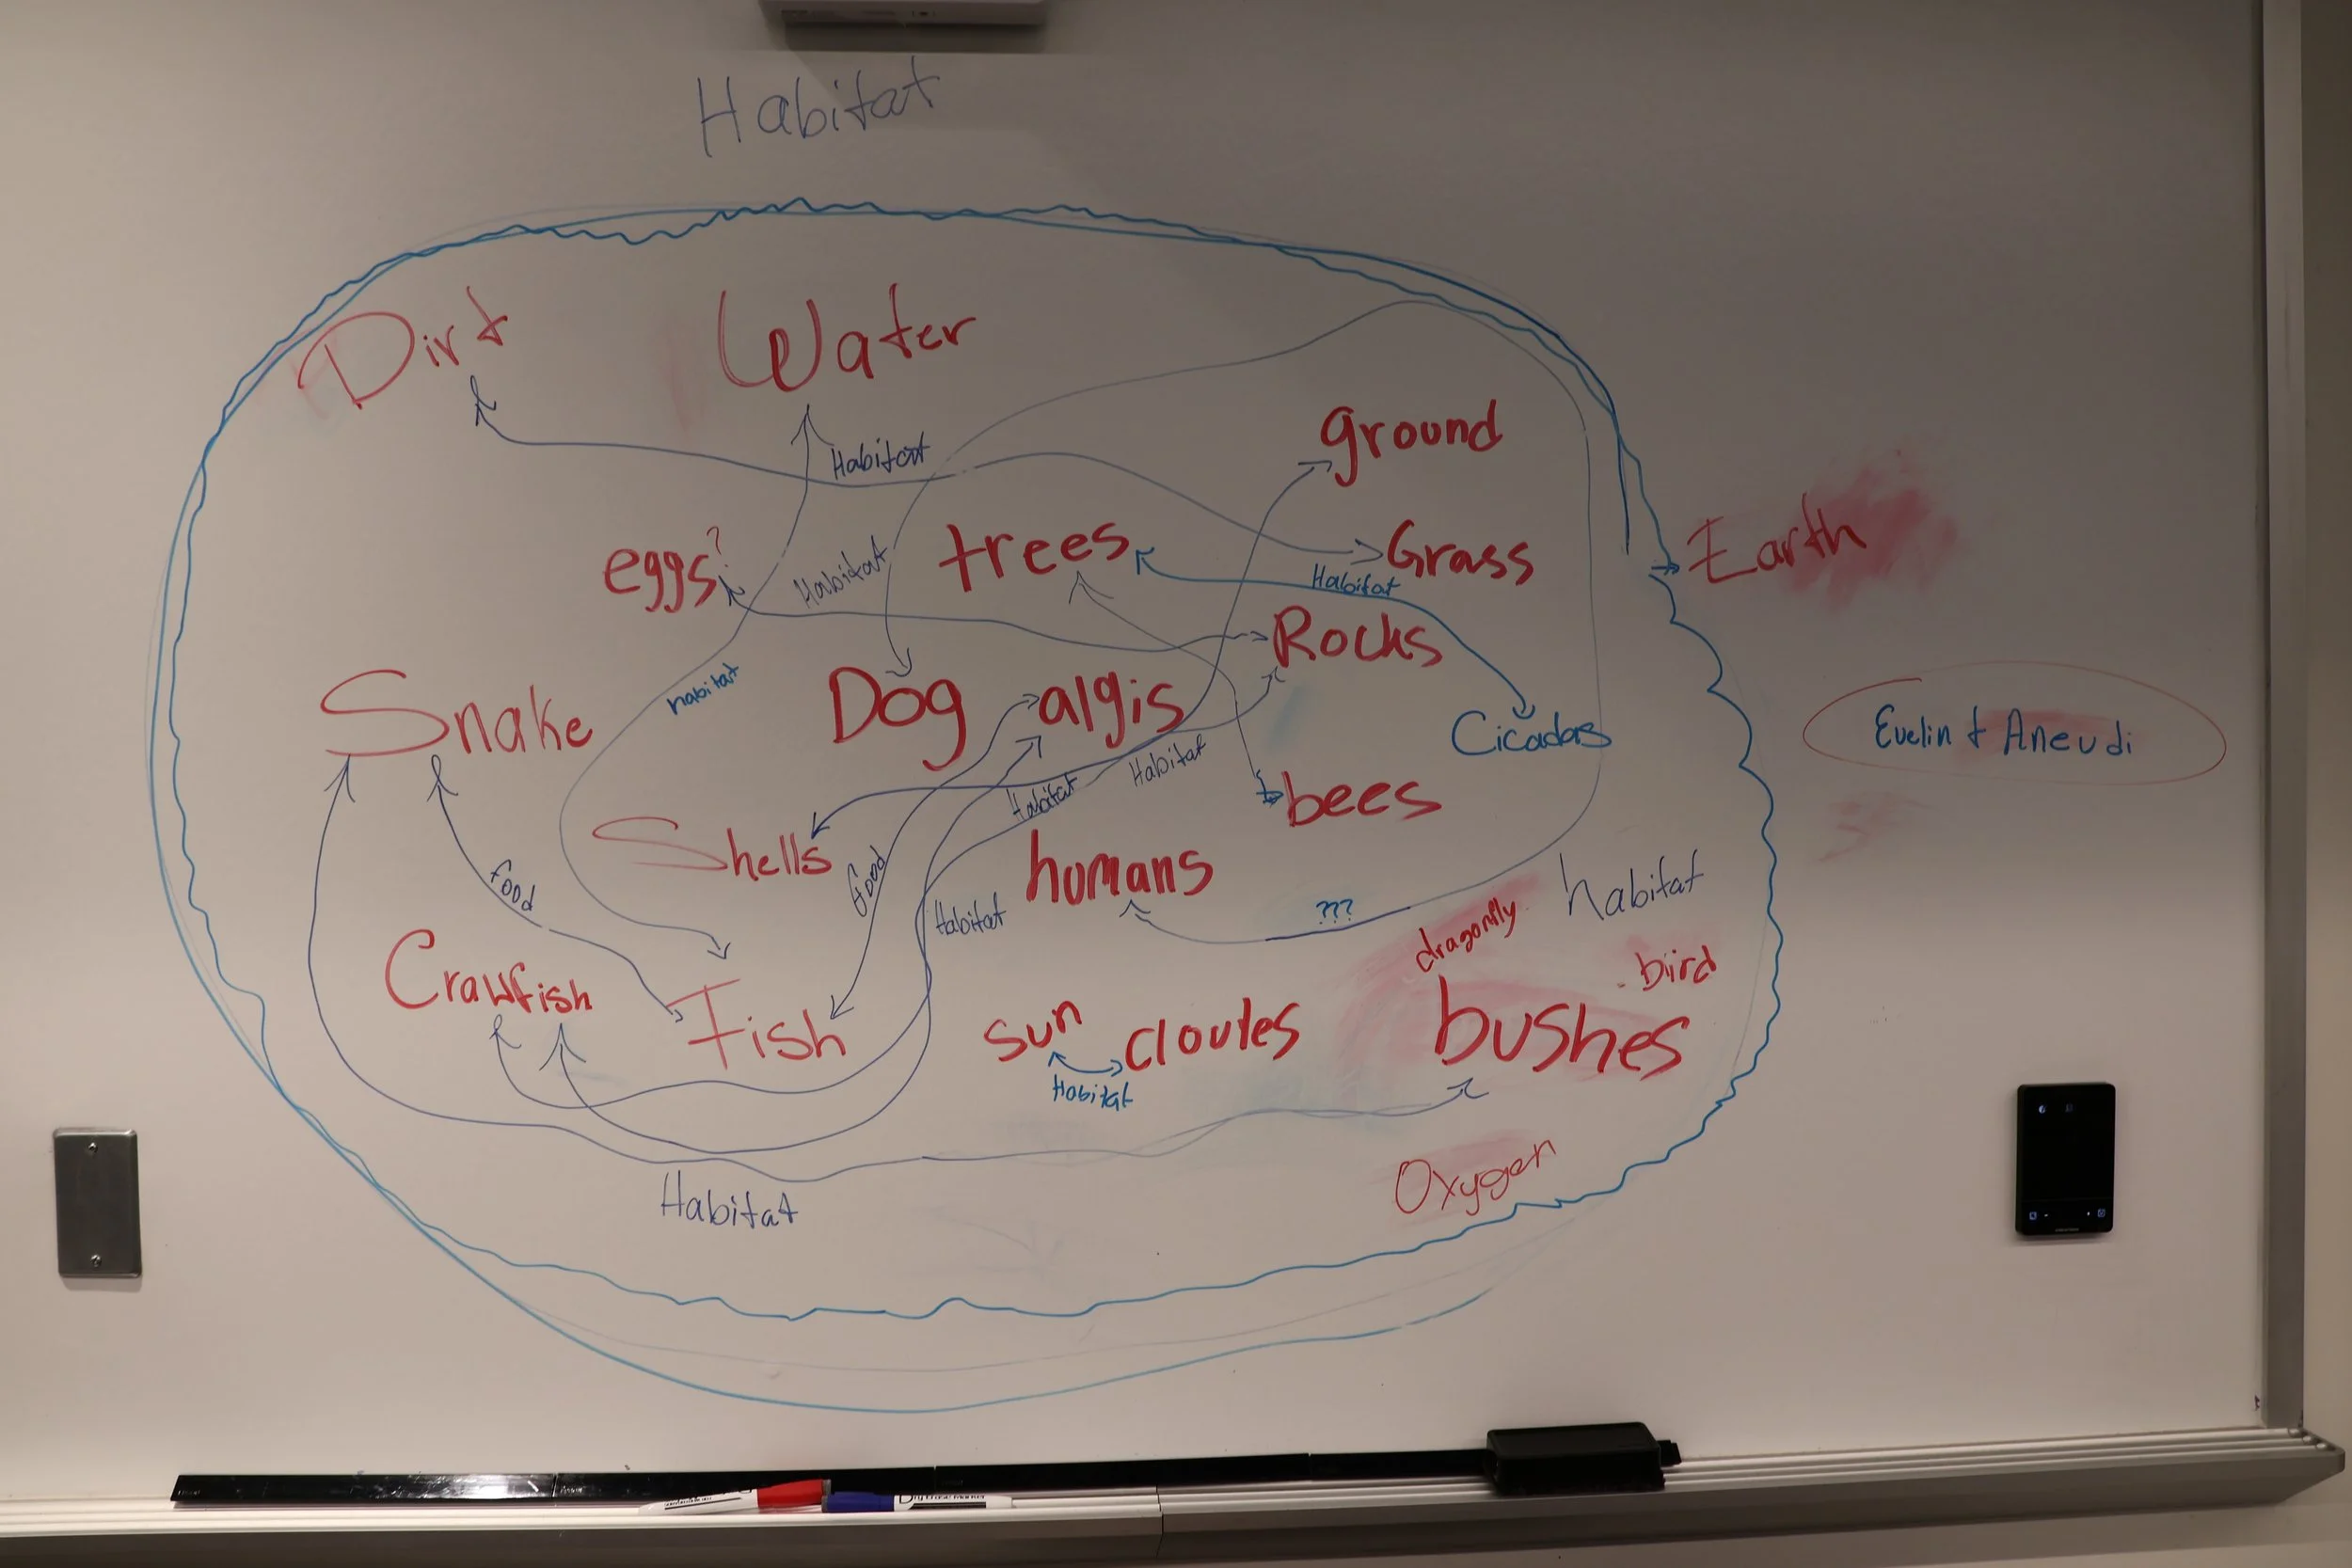 Habitat
Dirt
Water
ground
Habitat
eggs?
trees
Grass
Earth
Habitat
Habitat
Rocks
habitat
Snake
Dog
algis
Cicadas
Evelin & Aneudi
Habitat
Habitat
bees
Shells
humans
Food
Food
Habitat
???
habitat
dragonfly
bird
Crawfish
Fish
sun
cloudes
bushes
Habitat
Oxygen
Habitat
Dry Erase Marker